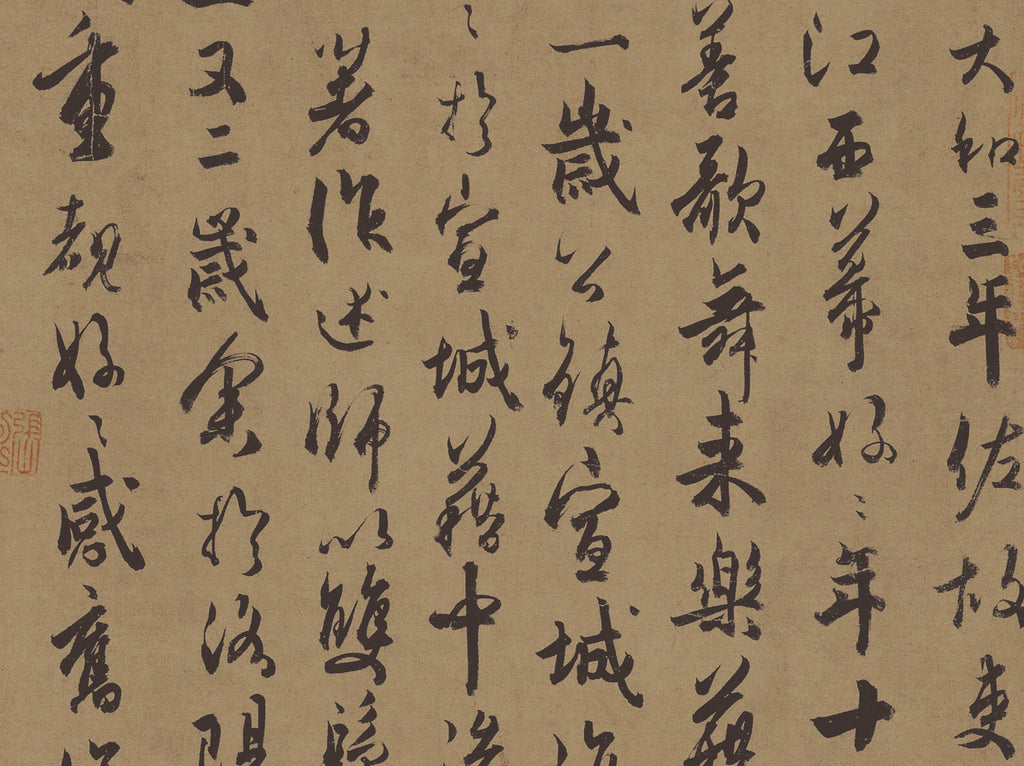 大和三年佐故吏
江西幕好〻年十
善歌舞来樂藉
一歲公鎮宣城
〻於宣城藉中
著作述師以雙鬟
又二歲余於洛陽
重覩好〻感舊